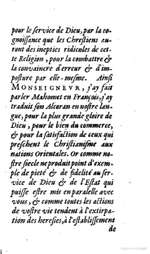 pour le service de Dieu, par la co-
gnoissance que les Chrestiens au-
ront des inepties ridicules de cet-
te Religion, pour la combattre &
la convaincre d'erreur & d'im-
posture par elle-mesme. Ainsi
MONSEIGNEVR, j'ay fait
parler Mahomet en François; j'ay
traduit son Alcoran en nostre lan-
gue, pour la plus grande gloire de
Dieu, pour le bien du commerce,
& pour la satisfaction de ceux qui
preschent le Christianisme aux
nations Orientales. Or comme no-
stre siecle ne produit point d'exem-
ple de pieté & de fidelité au ser-
vice de Dieu & de l'Estat qui
puisse estre mis en parallele avec
vous, & comme toutes les actions
de vostre vie tendent à l'extirpa-
tion des heresies, à l'establissement
de